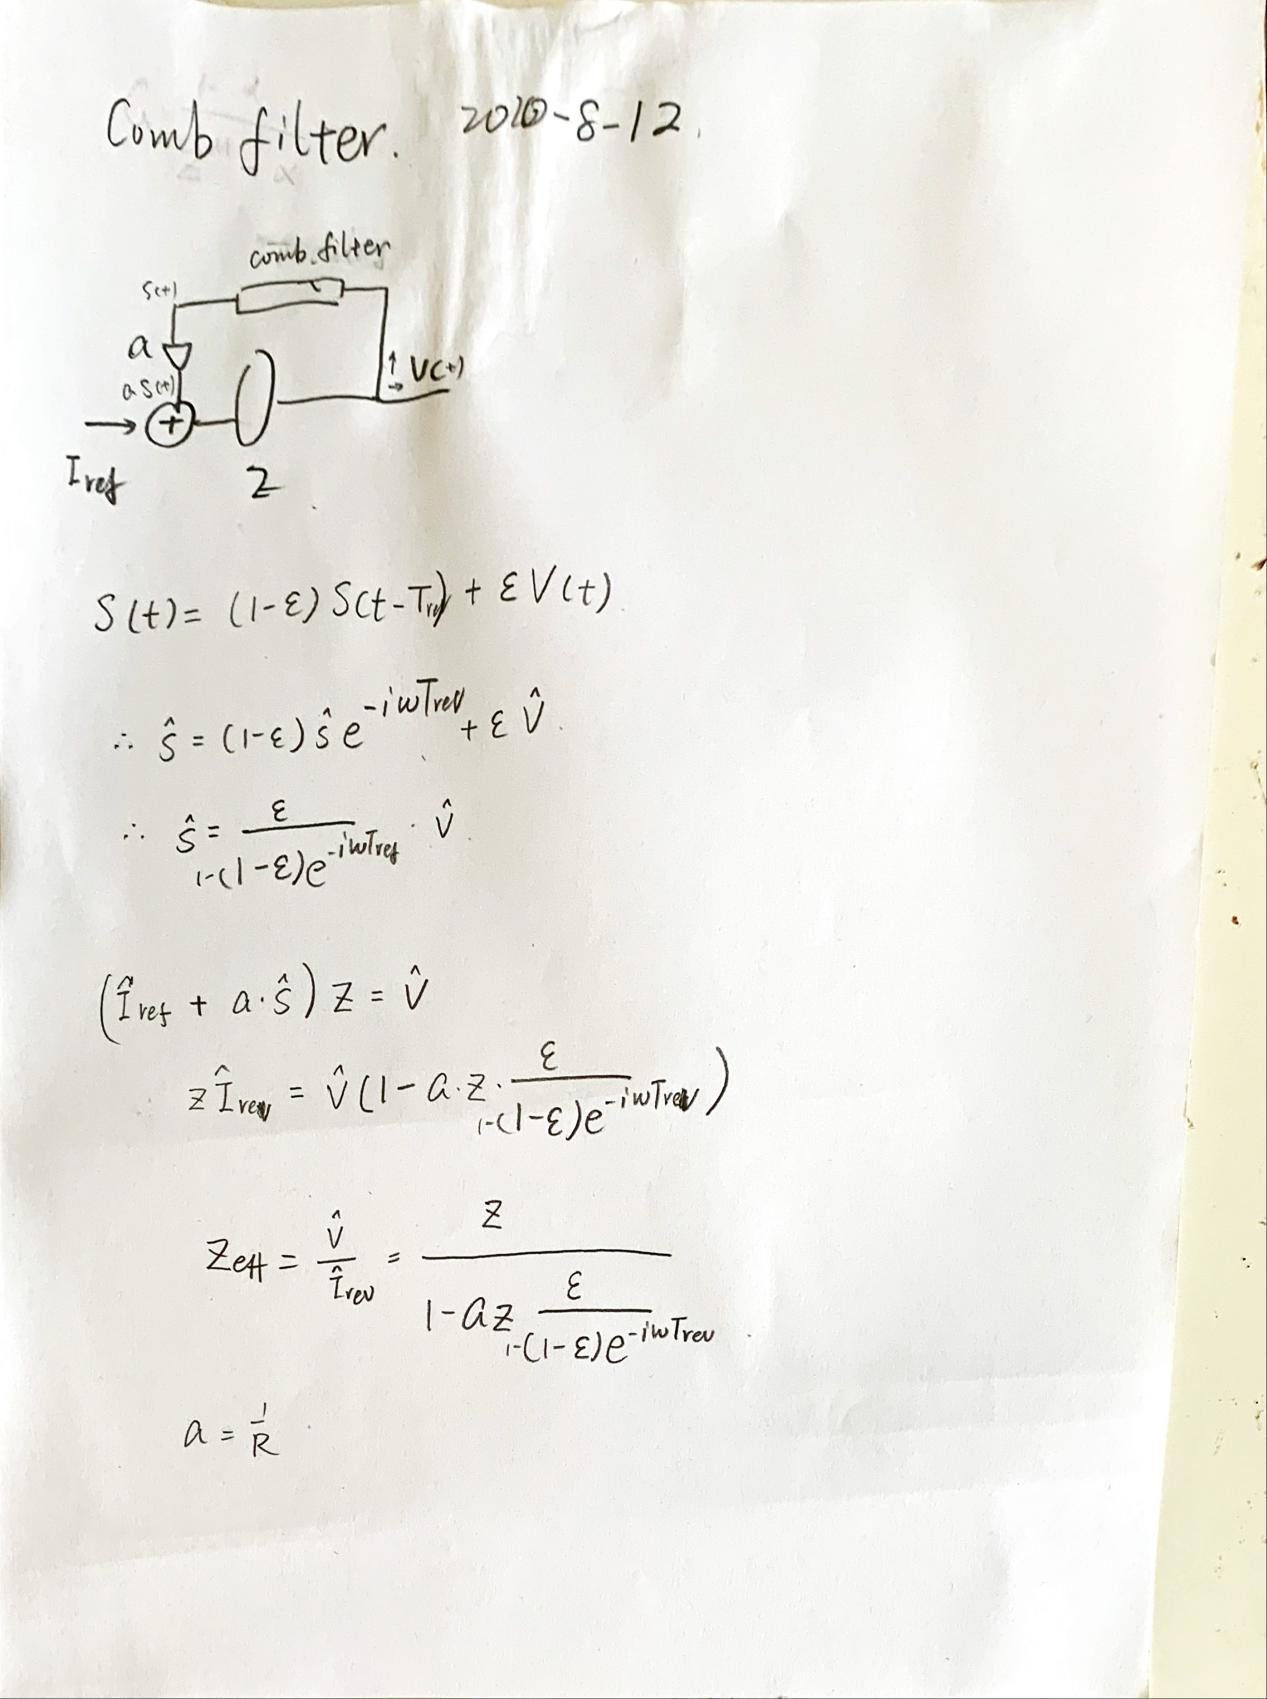 Comb filter. 2020-8-12.
comb.filter
S(t)
a
aS(t)
V(t)
I ref
Z
S(t) = (1-ε) S(t-Trev) + ε V(t)
∴ ŝ = (1-ε) ŝ e^{-iωTrev} + ε V̂.
∴ ŝ = ε / (1-(1-ε)e^{-iωTref}) · V̂
(Î ref + a·ŝ) Z = V̂
Z Î rev = V̂ (1 - a·Z· ε / (1-(1-ε)e^{-iωTrev}))
Zeff = V̂ / Î rev = Z / (1 - aZ ε / (1-(1-ε)e^{-iωTrev}))
a = 1/R